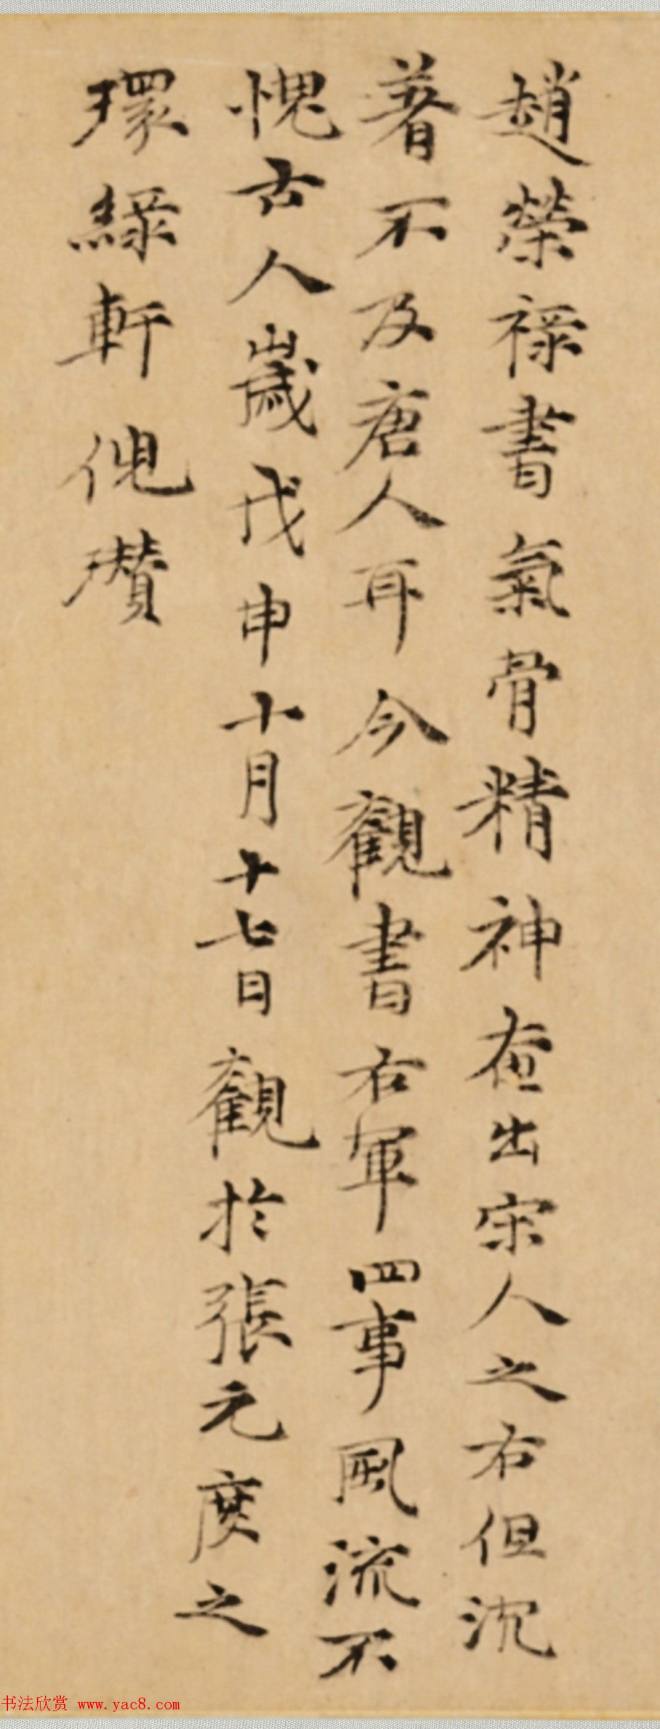 趙榮祿書氣骨精神在出宋人之右但沉
著不及唐人耳今觀書右軍四事風流不
愧古人歲戊申十月十七日觀於張元度之
環綠軒倪瓚
书法欣赏 www.yac8.com